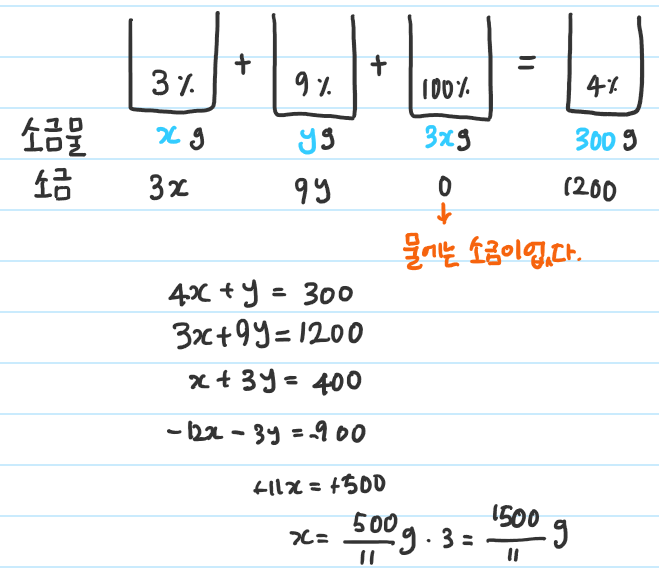 3% + 9% + 100% = 4%
소금물 xg yg 3xg 300g
소금 3x 9y 0 1200
↓
물에는 소금이 없다.
4x + y = 300
3x+9y=1200
x + 3y = 400
-12x - 3y = -900
+11x = +500
x = 500/11 g · 3 = 1500/11 g